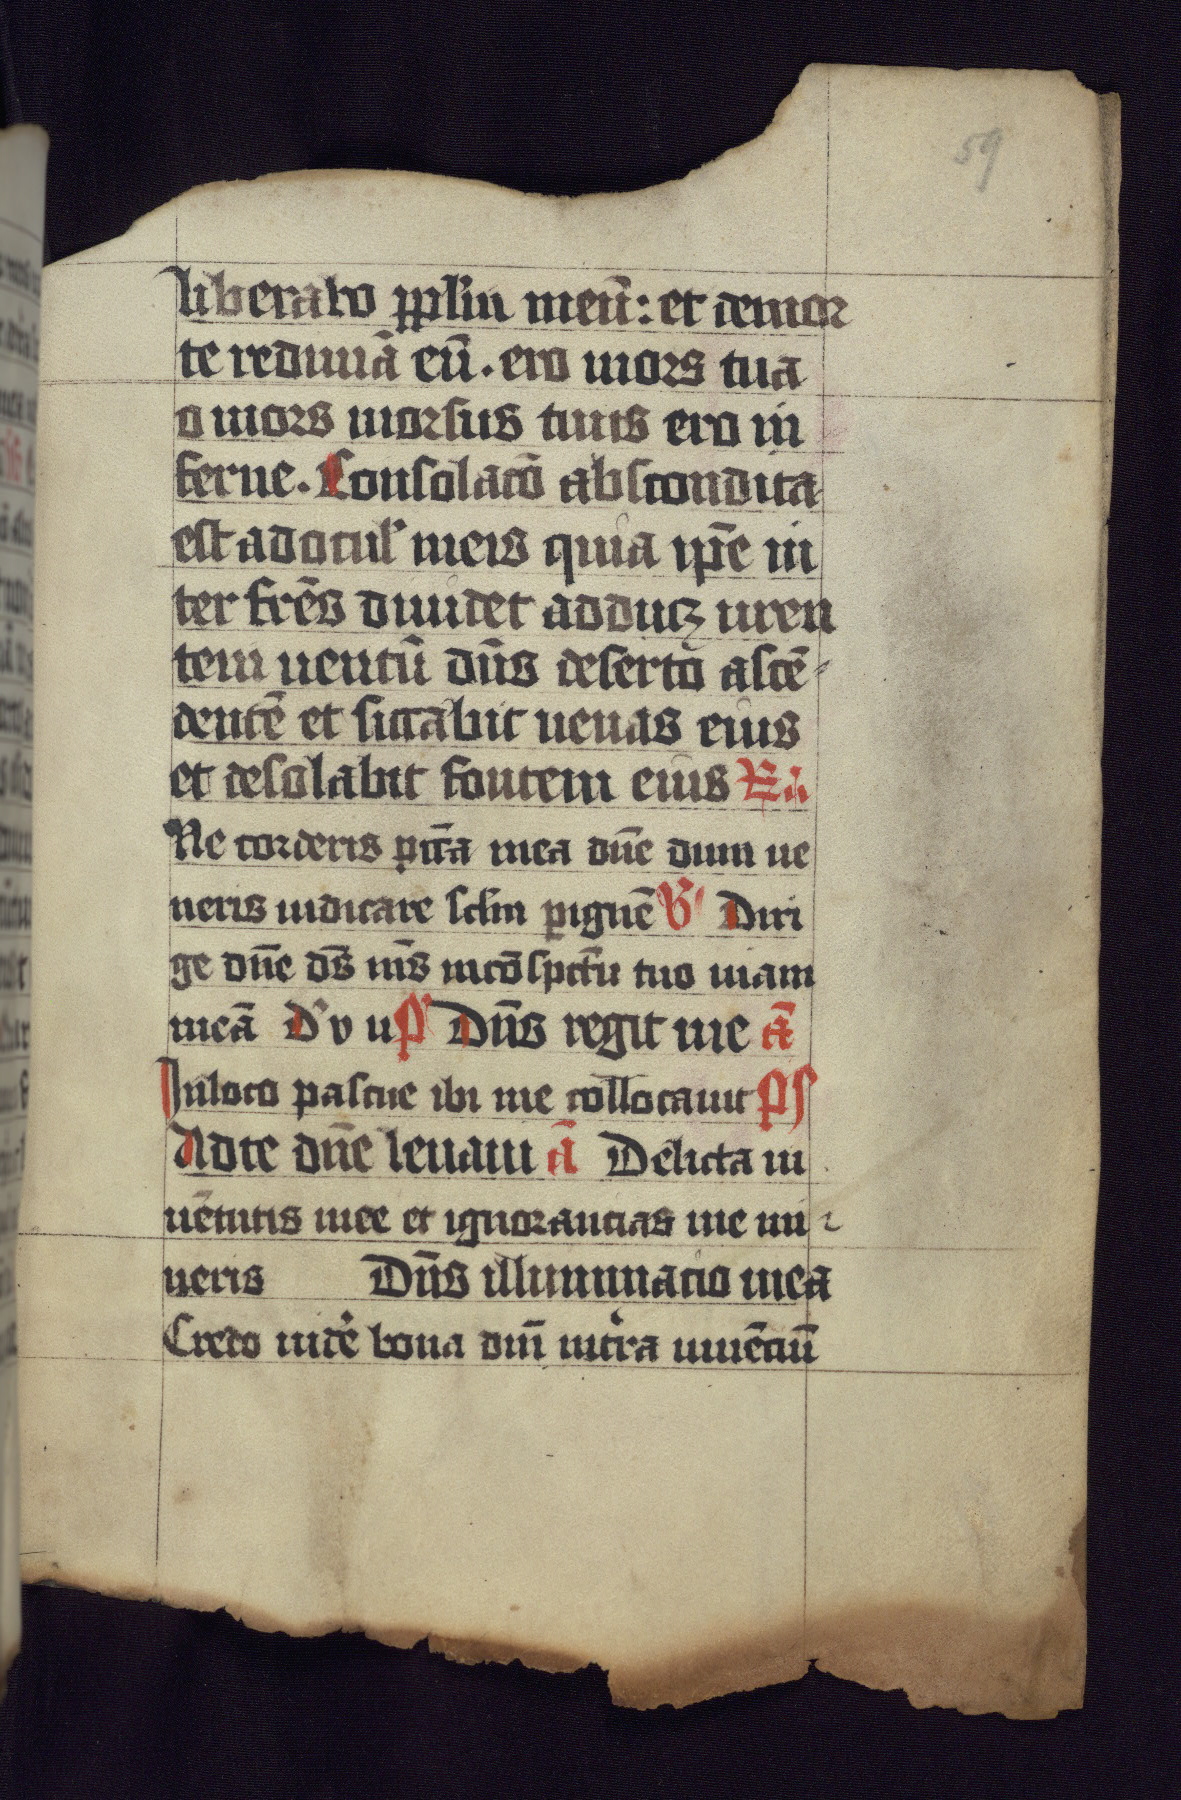 59
liberabo pplm̄ meū: et demor
te redimā eū. ero mors tua
o mors morsus tuus ero in
ferne. Consolacō abscondita
est ab ocul' meis quia ip̄e in
ter fr̄es diuidet adducꝫ uren
tem uentū dn̄s deserto ascē
dentē et siccabit uenas eius
et desolabit fontem eius
Ne recorderis pctā mea dn̄e dum ue
neris iudicare sclm̄ p ignē Diri
ge dn̄e ds̄ ms̄ in cōspctu tuo uiam
meā ps Dn̄s regit me ā
In loco pascue ibi me collocauit ps
Ad te dn̄e leuaui ā Delicta iu
uētutis mee et ignorancias me mi
neris Dn̄s illuminacio mea
Credo uidē bona dnī in tra uiuēciū